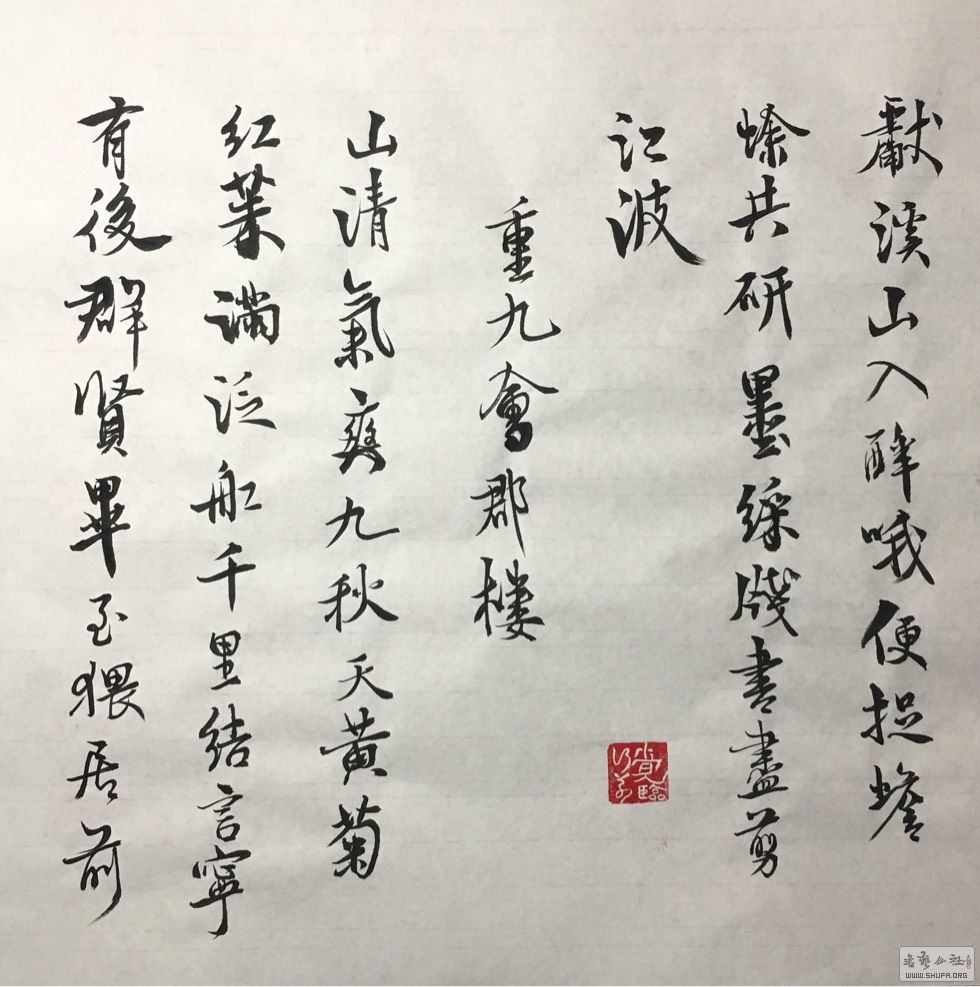 獻溪山入醉哦便捉蟾
蜍共研墨綵牋書盡剪
江波
重九會郡樓
山清氣爽九秋天黃菊
紅茱滿泛船千里結言寧
有後群賢畢至猥居前
書藝公社
WWW.SHUFA.ORG